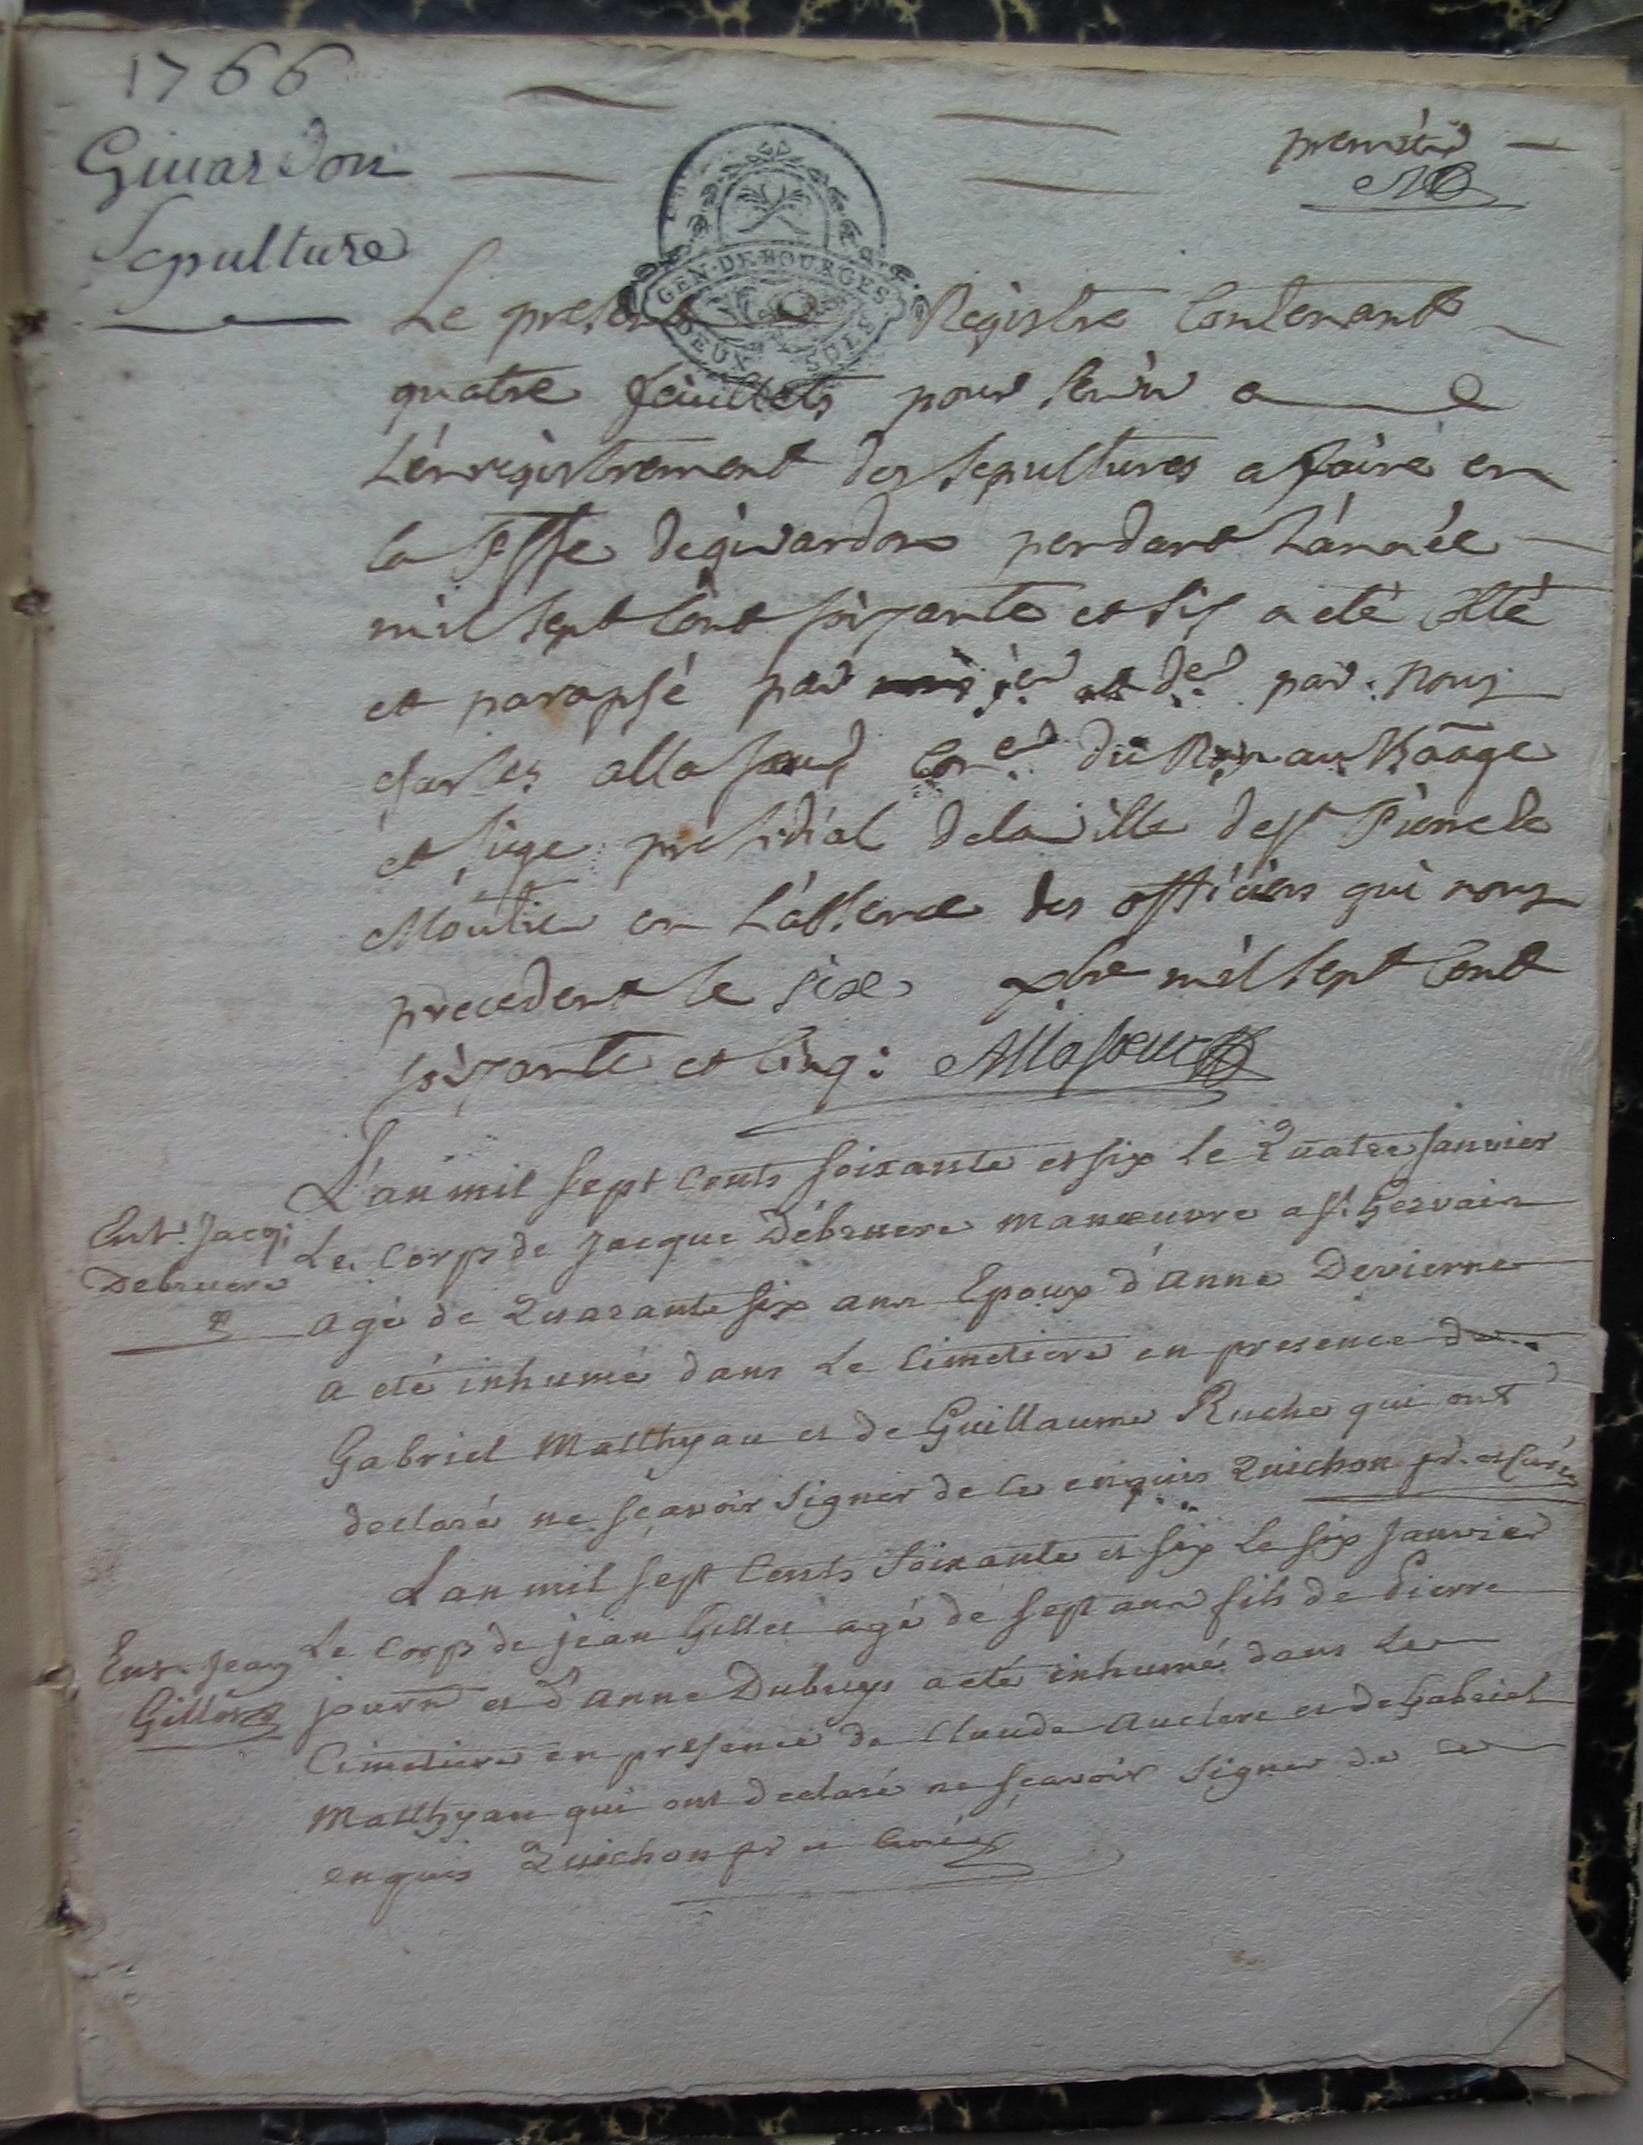 1766
Givardon
Sepulture
premier
GEN·DE BOURGES
DEUX SOLS
Le present Registre Contenant
quatre feuillets pour servir a
L'énrégistrement des sepultures a faire en
la psse de givardon pendant L'année
mil sept Cent soixante et six a été Côté
et paraphé par per et der par nous
charles allasoeur Coner du Roy au Baage
et siege presidial de la ville de st Pierre le
Moutier en L'absence des officiers qui nous
precedent le six xbre mil sept Cent
soixante et Cinq: Allasoeur
L'an mil sept Cents soixante et six Le Quatre Janvier
Ent. Jacq: Debruere
Le Corps de Jacque Débruere manœuvre a st Gervain
agé de Quarante six ans Epoux d'anne Devierne
a été inhumé dans Le Cimetiere en presence de
Gabriel Matthyau et de Guillaume Ruche qui ont
declaré ne sçavoir signer de ce enquis Quichon pr. et Curé
L'an mil sept Cents soixante et six Le six Janvier
Ent. Jean Gilles
Le Corps de jean Gilles agé de sept ans fils de Pierre
journr et d'anne Dubuys a été inhumé dans Le
Cimetiere en presence de Claude Auclere et de Gabriel
Matthyau qui ont declaré ne sçavoir signer de ce
enquis Quichon pr et Curé